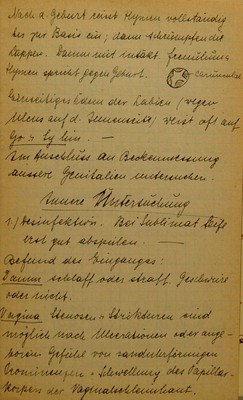 Nach d. Geburt reisst Hymen vollständig
bis zur Basis ein; dann schrumpfen die
Lappen. Damm mit intakt. frenulum u.
Hymen spricht gegen Geburt.
carunculae
Einseitiges Ödem der Labien (wegen
Ulcus auf d. Innenseite) weist oft auf
Go. + Sy hin. —
Im Anschluss an Beckenmessung
äussere Genitalien untersuchen.
Innere Untersuchung
1.) Desinfektion. Bei Sublimat Seife
erst gut abspülen. —
Befund des Einganges:
Damm schlaff oder straff. Geschwüre
oder nicht.
Vagina Stenosen + Strikturen sind
möglich nach Ulcerationen oder ange-
boren. Gefühl von sandkornförmigen
Prominenzen = Schwellung des Papillar-
körpers der Vaginalschleimhaut.